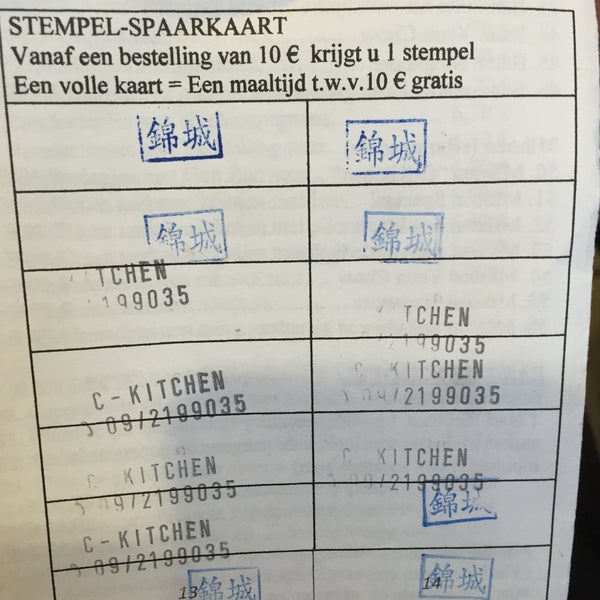 STEMPEL-SPAARKAART
Vanaf een bestelling van 10 € krijgt u 1 stempel
Een volle kaart = Een maaltijd t.w.v.10 € gratis
錦城
錦城
錦城
錦城
TCHEN
199035
TCHEN
2199035
C-KITCHEN
09/2199035
C-KITCHEN
09/2199035
C-KITCHEN
09/2199035
C-KITCHEN
09/2199035
錦城
C-KITCHEN
09/2199035
13
錦城
14
錦城